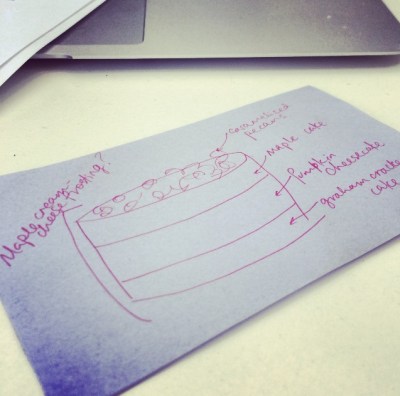 Maple cream
cheese frosting?
caramelized
pecans
maple cake
pumpkin
cheesecake
graham cracker
cake